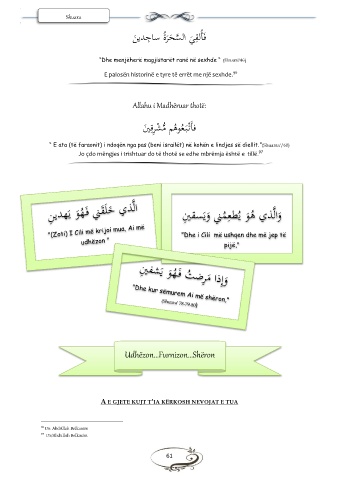 Shuara
فَأُلْقِيَ السَّحَرَةُ سَاجِدِينَ
"Dhe menjëherë magjistarët ranë në sexhde." (Shuara:46)
E palosën historinë e tyre të errët me një sexhde.
Allahu i Madhëruar thotë:
فَأَتْبَعُوهُم مُّشْرِقِينَ
" E ata (të faraonit) i ndoqën nga pas (beni israilët) në kohën e lindjes së diellit."
Jo çdo mëngjes i trishtuar do të thotë se edhe mbrëmja është e tillë.
الَّذِي خَلَقَنِي فَهُوَ يَهْدِينِ
"(Zoti) I Cili më krijoi mua, Ai më
udhëzon "
وَالَّذِي هُوَ يُطْعِمُنِي وَيَسْقِينِ
"Dhe i Cili më ushqen dhe më jep të
pijë,"
وَإِذَا مَرِضْتُ فَهُوَ يَشْفِينِ
"Dhe kur sëmurem Ai më shëron,"
Udhëzon...Furnizon...Shëron
A E GJETE KUJT T'IA KËRKOSH NEVOJAT E TUA
61